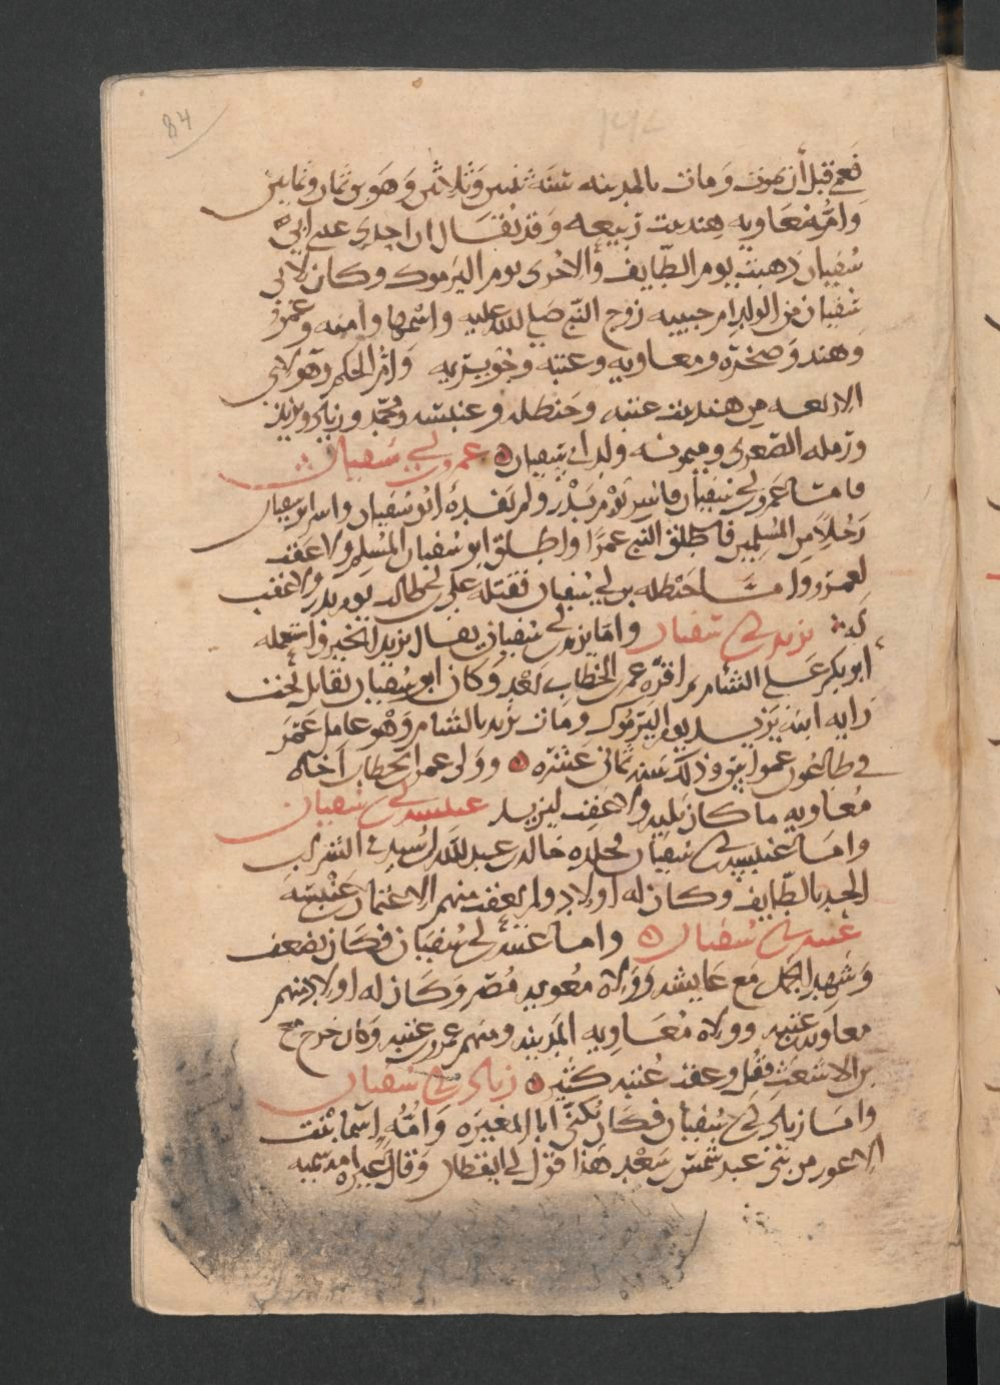 84
فعمى قبل أن يموت ومات بالمدينه سنه ثنتين وثلاثين وهو بن ثمان وثمانين
وام معاويه هند بنت ربيعه وقد يقال ان احدى عينى ابى
سفيان ذهبت يوم الطايف والاخرى يوم اليرموك وكان لابى
سفيان من الولد ام حبيبه زوج النبى صلى الله عليه واسمها وامنه وعمرو
وهند وصخره ومعاويه وعتبه وجويريه وام الحكم وهولاى
الاربعه من هند بنت عتبه وحنظله وعنبسه ومحمد وزياد ويزيد
ورمله الصغرى وميمونه ولد ابى سفيان عمرو بن ابى سفيان
فامـا عمرو بن ابى سفيان فاسر يوم بدر ولم يفده ابو سفيان واسر ابو سفيان
رجلا من المسلمين فاطلق النبى عمرا واطلق ابو سفيان المسلم ولا عقب
لعمرو وامـا حنظله بن ابى سفيان فقتله على بن ابى طالب يوم بدر ولا عقب
له يزيد بن ابى سفيان واما يزيد بن ابى سفيان يقال يزيد الخير واستعمله
ابو بكر على الشام ثم اقره عمر بن الخطاب بعد وكان ابو سفيان يقاتل تحت
رايه ابنه يزيد يوم اليرموك ومات يزيد بالشام وهو عامل عمر
فى طاعون عمواس وذلك سنه ثمانى عشره وولى عمر بن الخطاب اخاه
معاويه ما كان يليه ولا عقب ليزيد عنبسه بن ابى سفيان
وامـا عنبسه بن ابى سفيان فجلده خالد بن عبد الله بن اسيد فى الشراب
الحد بالطايف وكان له اولاد ولم يعقب منهم الا عثمان بن عنبسه
عتبه بن ابى سفيان وامـا عتبه بن ابى سفيان فكان يضعف
وشهد الجمل مع عايشه وولاه معويه مصر وكان له اولاد منهم
معاويه بن عتبه وولاه معاويه المدينه ومنهم عمرو بن عتبه وكان خرج مع
بن الاشعث فقتل وعقب عتبه كثير زياد بن ابى سفيان
وامـا زياد بن ابى سفيان فكان يكنى ابا المغيره وامه اسما بنت
الاعور من بنى عبد شمس بن سعد هذا قول ابى اليقظان وقال غيره امه سميه